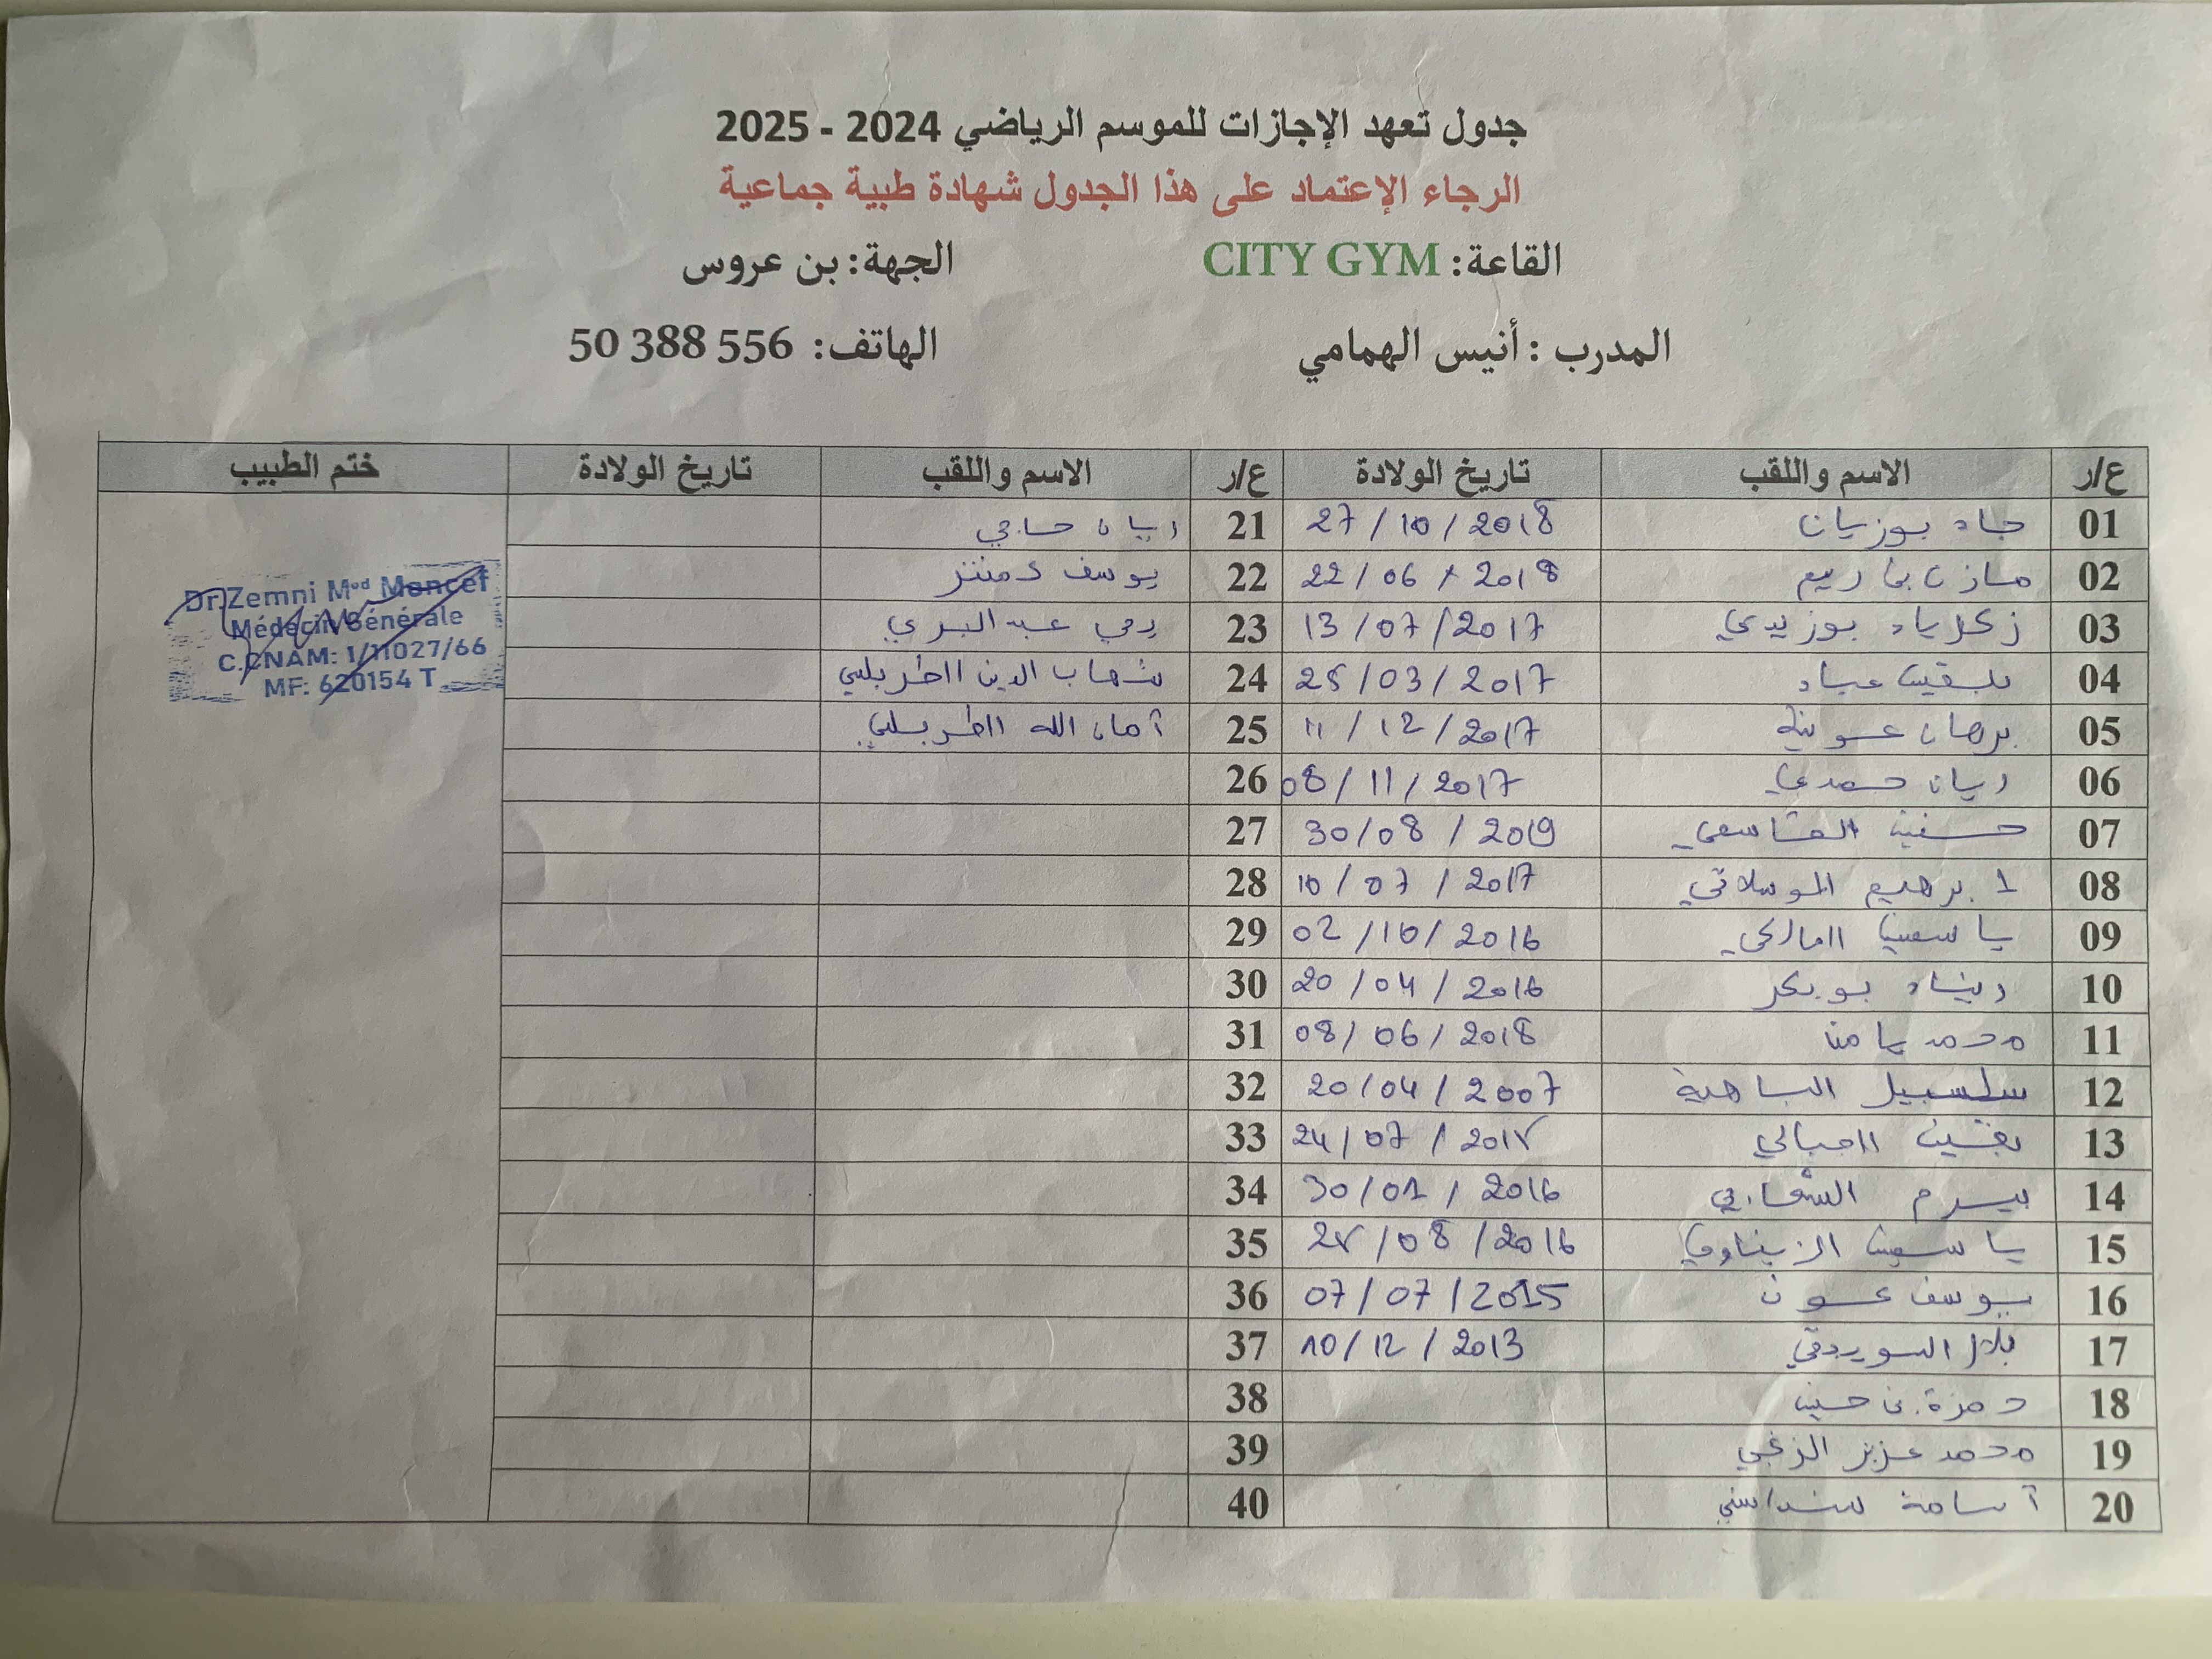 جدول تعهد الإجازات للموسم الرياضي 2024 - 2025
الرجاء الإعتماد على هذا الجدول شهادة طبية جماعية
القاعة: CITY GYM الجهة: بن عروس
المدرب : أنيس الهمامي الهاتف: 50 388 556
ع/ر الاسم واللقب تاريخ الولادة ع/ر الاسم واللقب تاريخ الولادة ختم الطبيب
01 جاد بوزيان 27/10/2018 21 ريان حاجي
02 مازن بن ربيع 22/06/2018 22 يوسف
03 زكرياء بوزيدي 13/07/2017 23 عبد البري
04 بلقيس عياد 25/03/2017 24 شهاب الدين الطربلسي
05 برهان عوينة 11/12/2017 25 آمان الله الطربلسي
06 ريان حمدي 08/11/2017 26
07 القاسمي 30/08/2019 27
08 ابرهيم الموسلاتي 10/07/2017 28
09 ياسمين المالكي 02/10/2016 29
10 ريناد بوبكر 20/04/2016 30
11 محمد يامن 08/06/2018 31
12 سلسبيل الباهية 20/04/2007 32
13 24/07/2017 33
14 بيرم الشعابي 30/01/2016 34
15 ياسمين الزيناوي 27/08/2016 35
16 يوسف عون 07/07/2015 36
17 بلال السويدقي 10/12/2013 37
18 حمزة بن حسين 38
19 محمد عزيز الزغبي 39
20 آسامة سنداسني 40
Dr.Zemni Mod Moncef
Médecin Générale
C.CNAM: 1/11027/66
MF: 620154 T